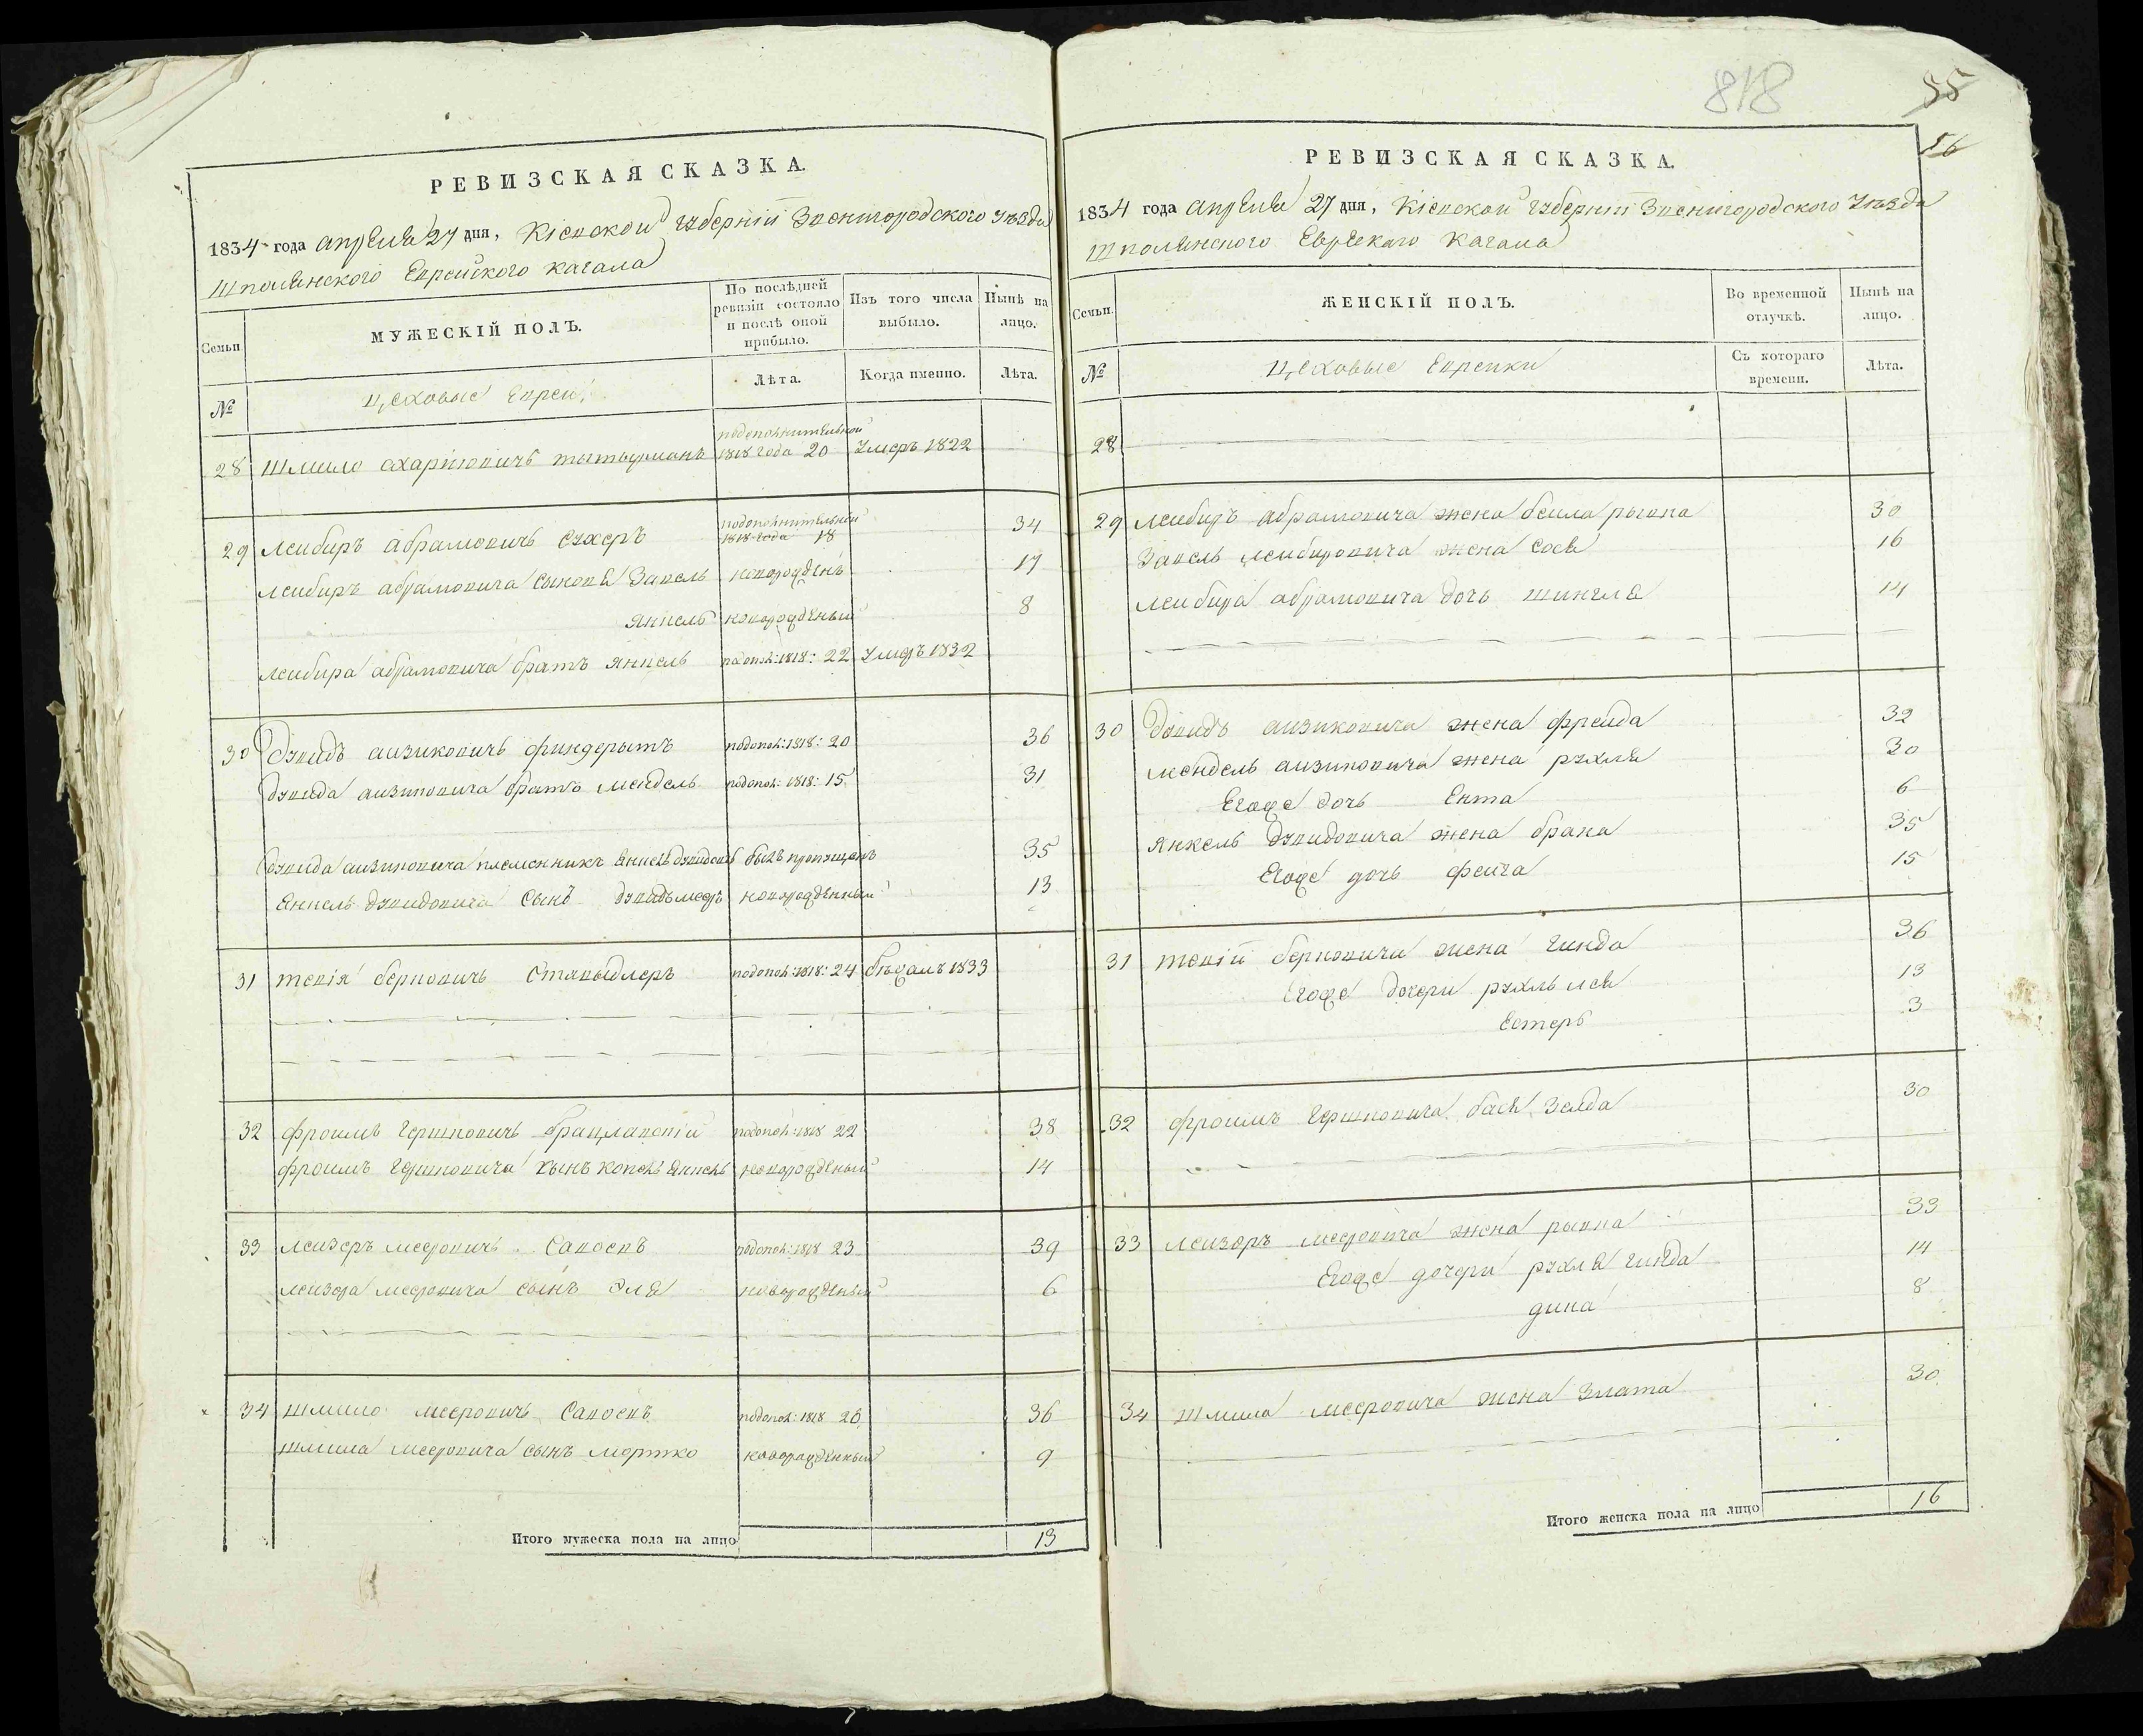 818
55
56
РЕВИЗСКАЯ СКАЗКА.
1834 года апреля 27 дня, Кіевской губерніи Звенигородского уѣзда
Шполянского Еврейского кагала
Семьи.
МУЖЕСКІЙ ПОЛЪ.
По послѣдней ревизіи состояло и послѣ оной прибыло.
Изъ того числа выбыло.
Нынѣ на лицо.
№
цеховые Евреи
Лѣта.
Когда именно.
Лѣта.
28 Шмило тытырманъ подополнительной 1818 года 20 Умеръ 1822
29 Лейбиръ Абрамовичъ Сухеръ подополнительной 1818 года 18 34
Лейбиръ Абрамовича сыновя Завель новорожденъ 17
Янкель новорожденый 8
Лейбира Абрамовича братъ Янкель подопол: 1818: 22 Умеръ 1832
30 Дувидъ Аизиковичъ финдерытъ подопол: 1818: 20 36
Дувида Аизиковича братъ Мендель подопол: 1818: 15 31
Дувида Аизиковича племенникъ Янкель Дувидовъ былъ пропущенъ 35
Янкель Дувидовича сынъ новорожденный 13
31 Тевія Берковичъ подопол: 1818: 24 бѣжалъ 1833
32 Фроимъ Гершковичъ Брацлавскій подопол: 1818 22 38
Фроимъ Гершковича сынъ Копель Янкель новорожденый 14
33 Лейзеръ Мееровичъ Саповъ подопол: 1818 23 39
Лейзера Мееровича сынъ Эля новорожденый 6
34 Шмило Мееровичъ Саповъ подопол: 1818 20 36
Шмила Мееровича сынъ Мортко новорожденный 9
Итого мужеска пола на лицо 13
РЕВИЗСКАЯ СКАЗКА.
1834 года апреля 27 дня, Кіевской губерніи Звенигородского уѣзда
Шполянского Еврейскаго Кагала
Семьи.
ЖЕНСКІЙ ПОЛЪ.
Во временной отлучкѣ.
Нынѣ на лицо.
№
цеховые Еврейки
Съ котораго времени.
Лѣта.
28
29 Лейбиръ Абрамовича жена Бейла рывка 30
Завель Лейбировича жена Сося 16
Лейбира Абрамовича дочь Шингля 14
30 Дувидъ Аизиковича жена Фрейда 32
Мендель Аизиковича жена Рухля 30
Егоже дочь Ента 6
Янкель Дувидовича жена Брана 35
Егоже дочь Фейга 15
31 Тевій Берковича жена Гинда 36
Егоже дочери Рухль Лея 13
Естеръ 3
32 Фроимъ Гершковича Бася Зелда 30
33 Лейзоръ Мееровича жена рывка 33
Егоже дочери Рухля Гинда 14
дина 8
34 Шмила Мееровича жена Злата 30
Итого женска пола на лицо 16